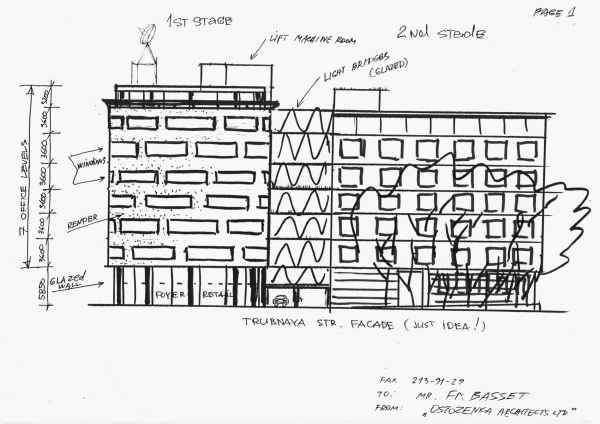 PAGE 1
1ST STAGE
2Nd STAGE
LIFT MACHINE ROOM
LIGHT BRIDGES
(GLAZED)
7 OFFICE LEVELS
3600
3600
3600
3600
3600
5850
WINDOWS
RENDER
GLAZED
WALL
FOYER
RETAIL
TRUBNAYA STR. FACADE (JUST IDEA!)
FAX 293-91-29
TO: MR. Fr. BASSET
FROM: "OSTOZENKA ARCHITECTS LTD"